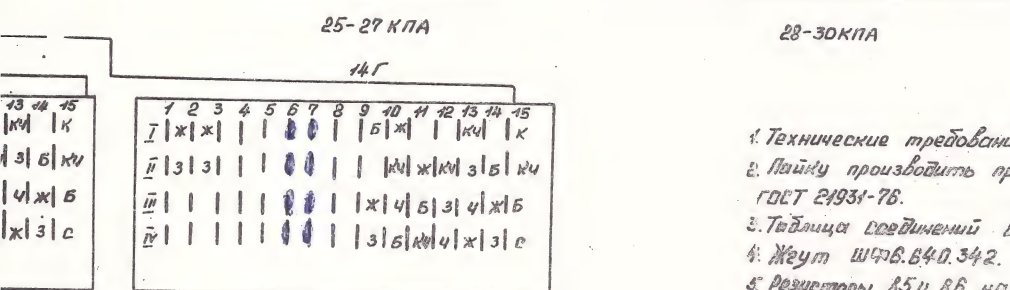 25-27 КПА
28-30КПА
14Г
13 14 15
КЧ К
З Б КЧ
Ч Ж Б
Ж З С
1 2 3 4 5 6 7 8 9 10 11 12 13 14 15
I Ж Ж Б Ж КЧ К
II З З КЧ Ж КЧ З Б КЧ
III Ж Ч Б З Ч Ж Б
IV З Б КЧ Ч Ж З С
1. Технические требован
2. Пайку производить пр
ГОСТ 21931-76.
3. Таблица соединений
4. Жгут ШФ6.640.342.
5. Резисторы R5 и R6 на